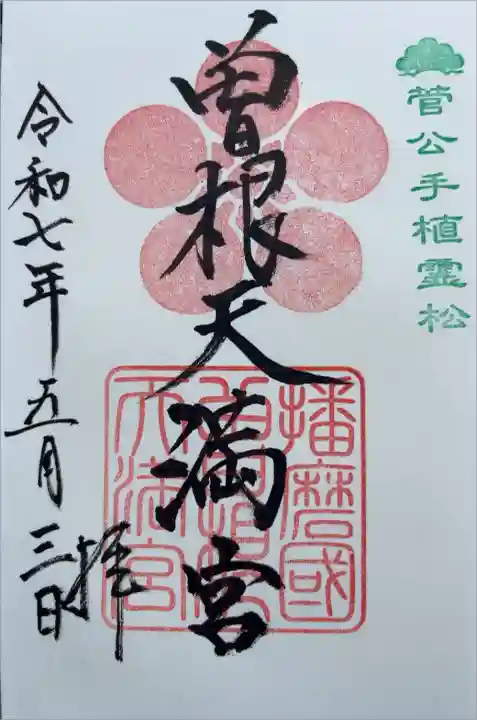 菅公手植霊松
曽根天満宮
播磨國
曽根
天満宮
令和七年五月三日
拝